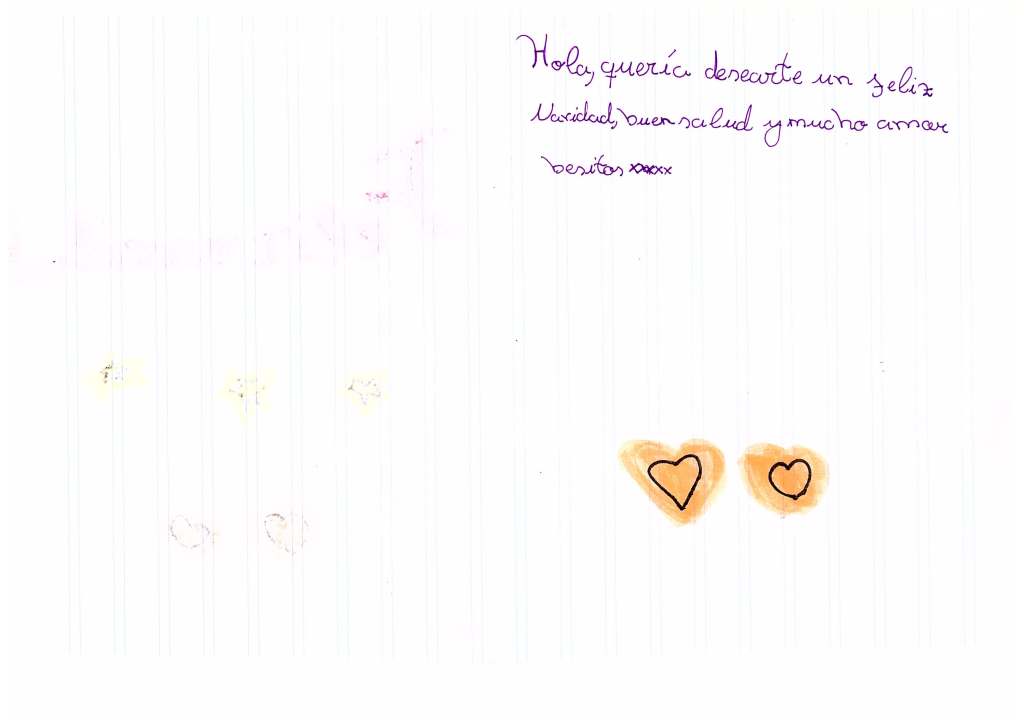 Hola, quería desearte un feliz
Navidad, buen salud y mucho amor
besitos xxxxx